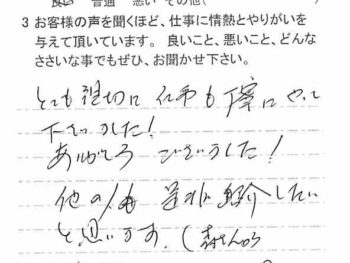 良い 普通 悪い その他(
3 お客様の声を聞くほど、仕事に情熱とやりがいを
与えて頂いています。 良いこと、悪いこと、どんな
ささいな事でもぜひ、お聞かせ下さい。
とても親切に 仕事も 丁寧に やって
下さいました!
ありがとう ございました!
他の人も 是非 紹介したい
と思います。(森さんから